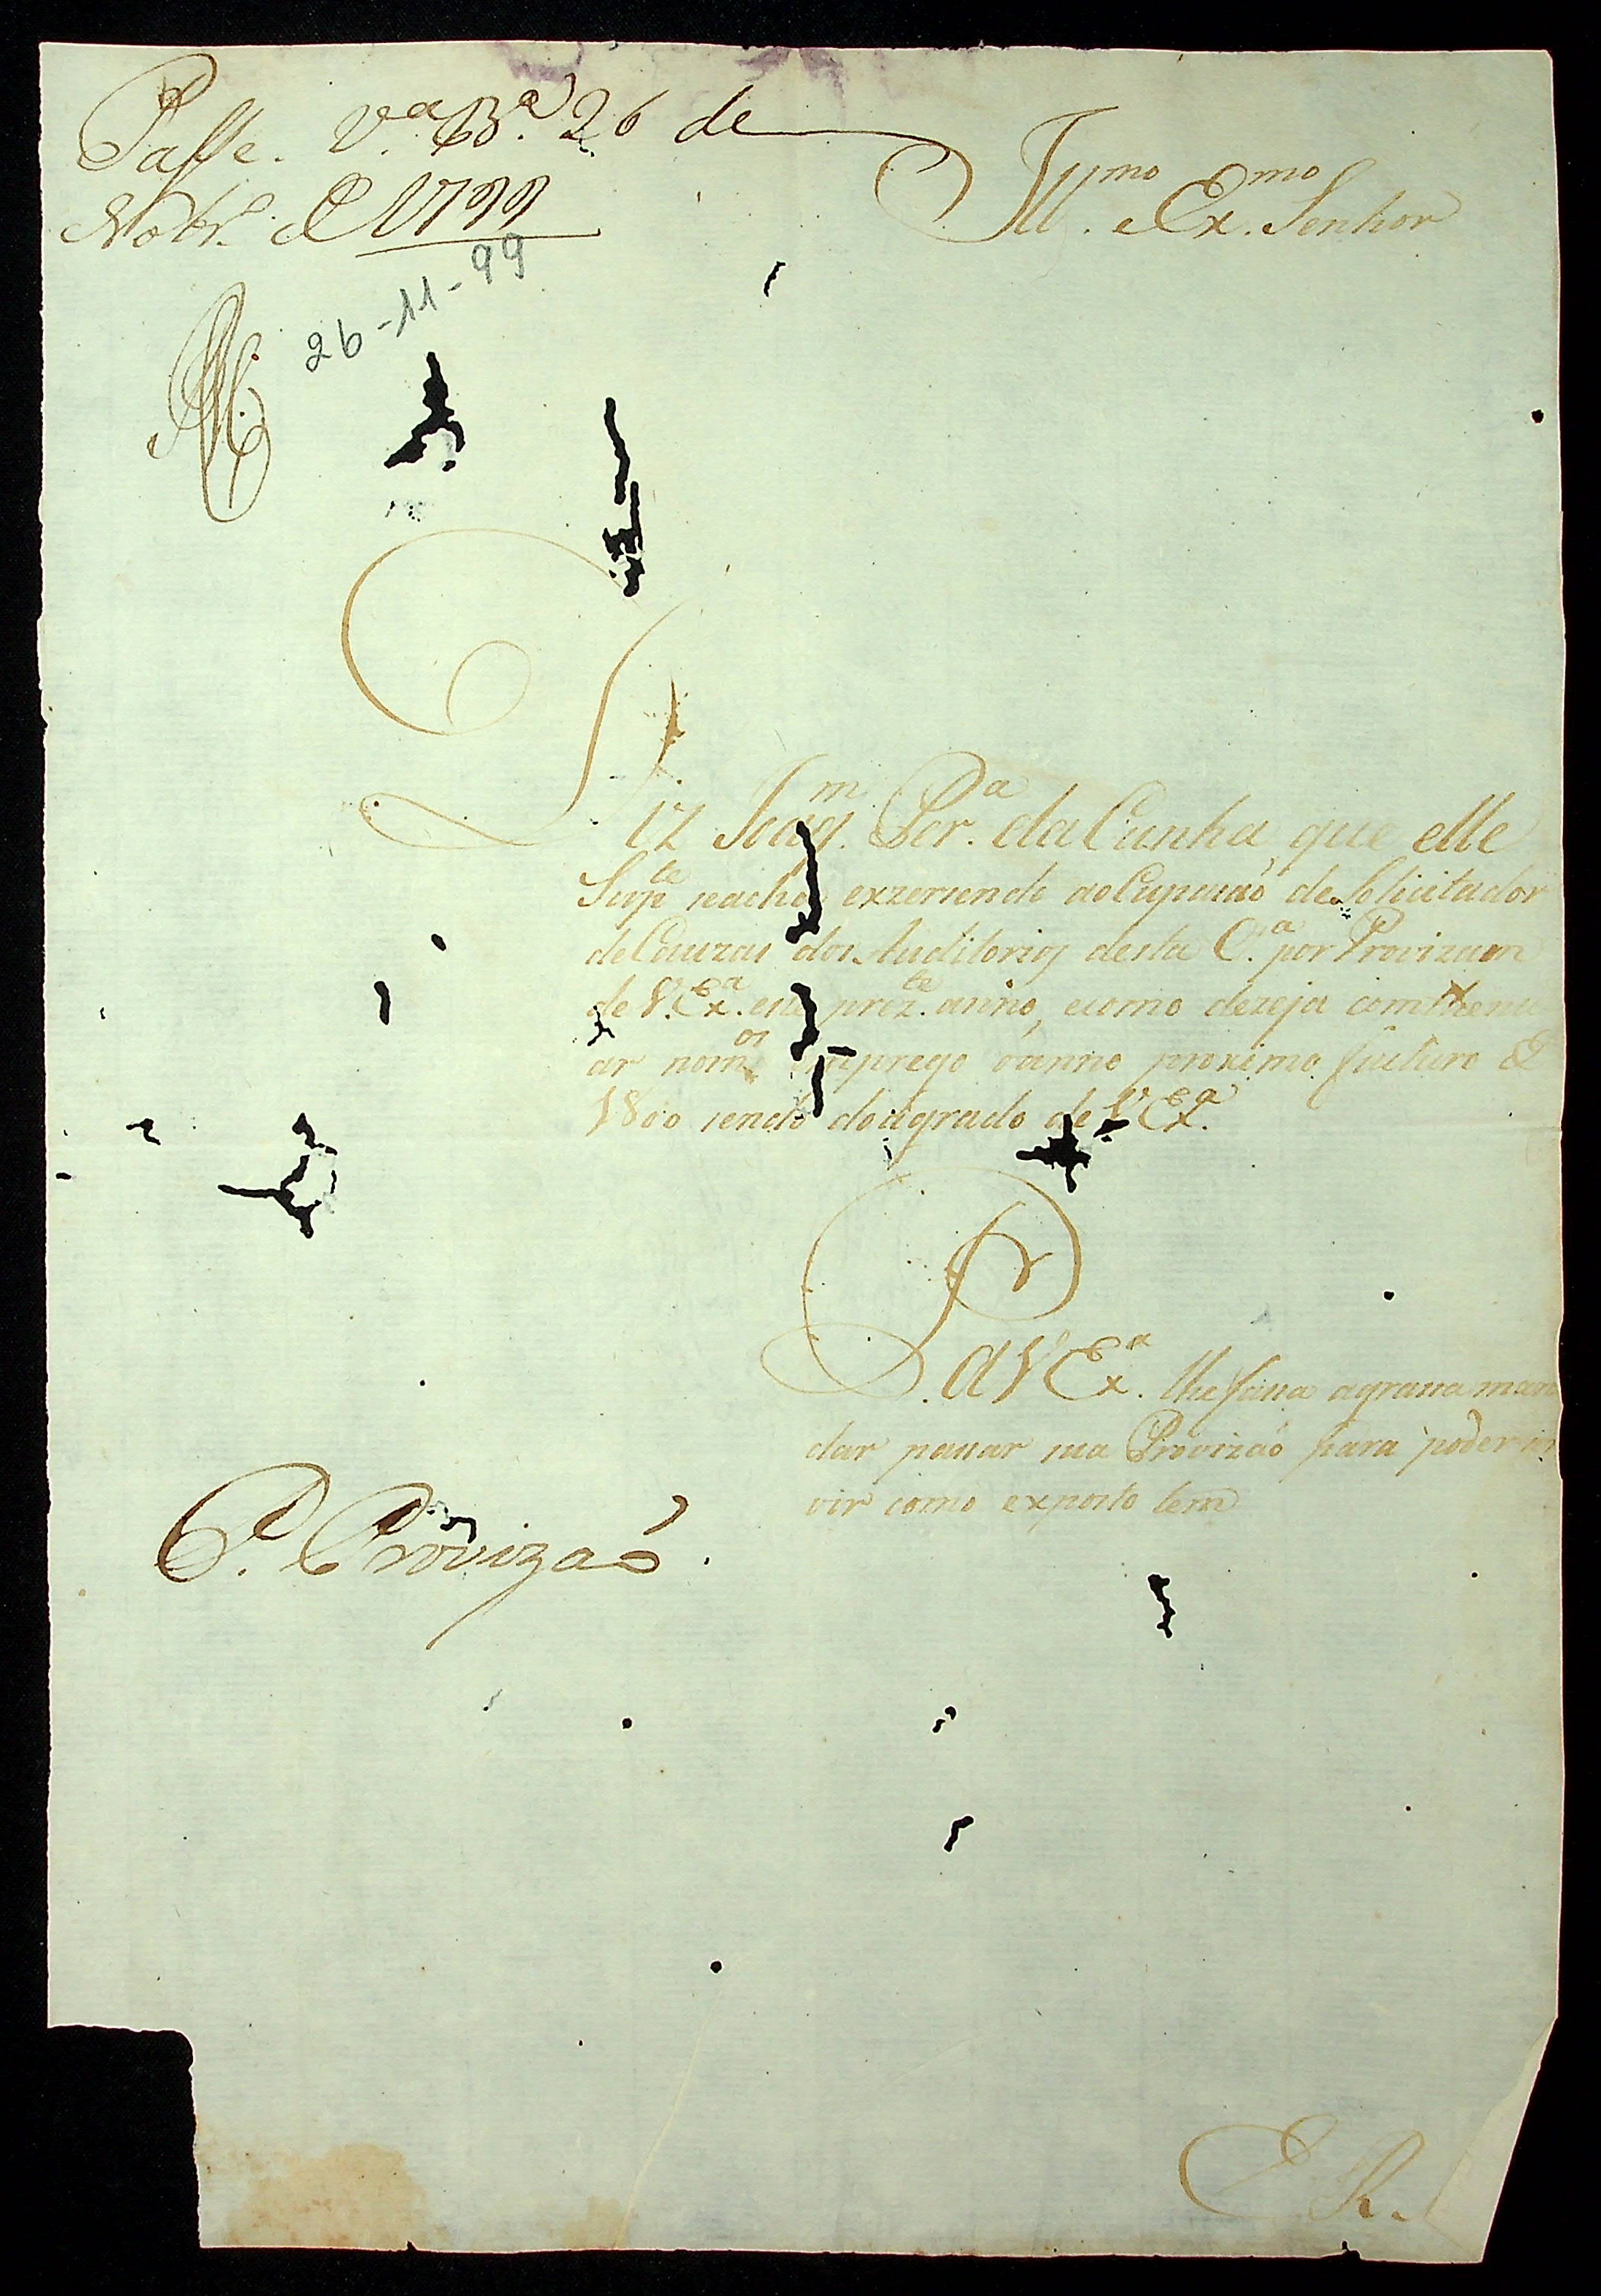 Passe. V.ª B.ª 26 de
Nobr.º d 1799
26-11-99
Ill.mo e Ex.mo Senhor
Diz Joaq.m Per.ª da Cunha, que elle
Sup.te se acha exzersendo aoCupasaó de Solicitador
de Cauzas dos Auditorios desta C.ª por Provizaon
de V. Ex.ª este prez.te anno, e como dezeja comthenu
ar no m.mo emprego o anno proximo futuro d
1800 sendo do agrado de V Ex.ª
P. a V Ex.ª lhe fasa a grasa man
dar pasar sua Provizaó para poder ser
vir como exposto tem
P. Provizaó.
E R.